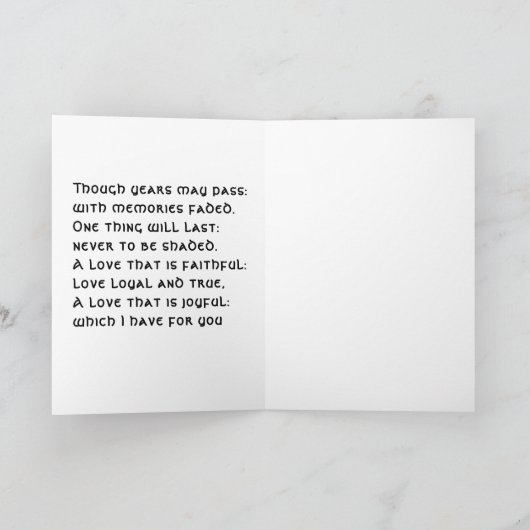 Though years may pass:
with memories faded.
One thing will last:
never to be shaded.
A Love that is faithful:
Love Loyal and true,
A Love that is joyful:
which I have for you